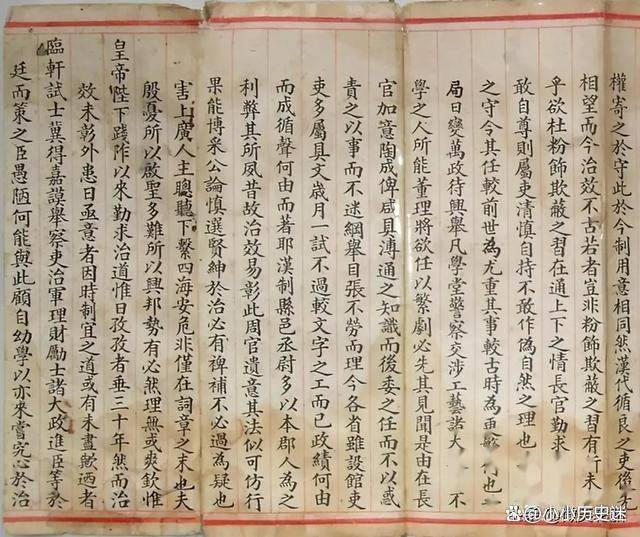 權寄之於守此於今制用意相同然漢代循良之吏後先
相望而今治效不古若者豈非粉飾欺蔽之習有未
乎欲杜粉飾欺蔽之習在通上下之情長官勤求
敢自尊則屬吏清慎自持不敢作偽自然之理也
之守令其任較前世為尤重其事較古時為更何也
局日變萬政待興舉凡學堂警察交涉工藝諸大 不
學之人所能董理將欲任以繁劇必先其見聞是由在長
官加意陶成俾咸具溥通之知識而後委之任而不以惑
責之以事而不迷綱舉目張不勞而理今各省雖設館吏
吏多屬具文歲月一試不過較文字之工而已政績何由
而成循聲何由而著耶漢制縣邑丞尉多以本郡人為之
利弊其所夙昔故治效易彰此周官遺意其法似可仿行
果能博采公論慎選賢紳於治必有裨補不必過為疑也
害上廣人主聰聽下繫四海安危非僅在詞章之末也夫
殷憂所以啟聖多難所以興邦勢有必然理無或爽欽惟
皇帝陛下踐阼以來勤求治道惟日孜孜者垂三十年然而治
效未彰外患日亟意者因時制宜之道或有未盡歟邇者
臨軒試士冀得嘉謨舉察吏治軍理財勵士諸大政進臣等於
廷而策之臣愚陋何能與此顧自幼學以亦來嘗究心於治
@小小历史迷